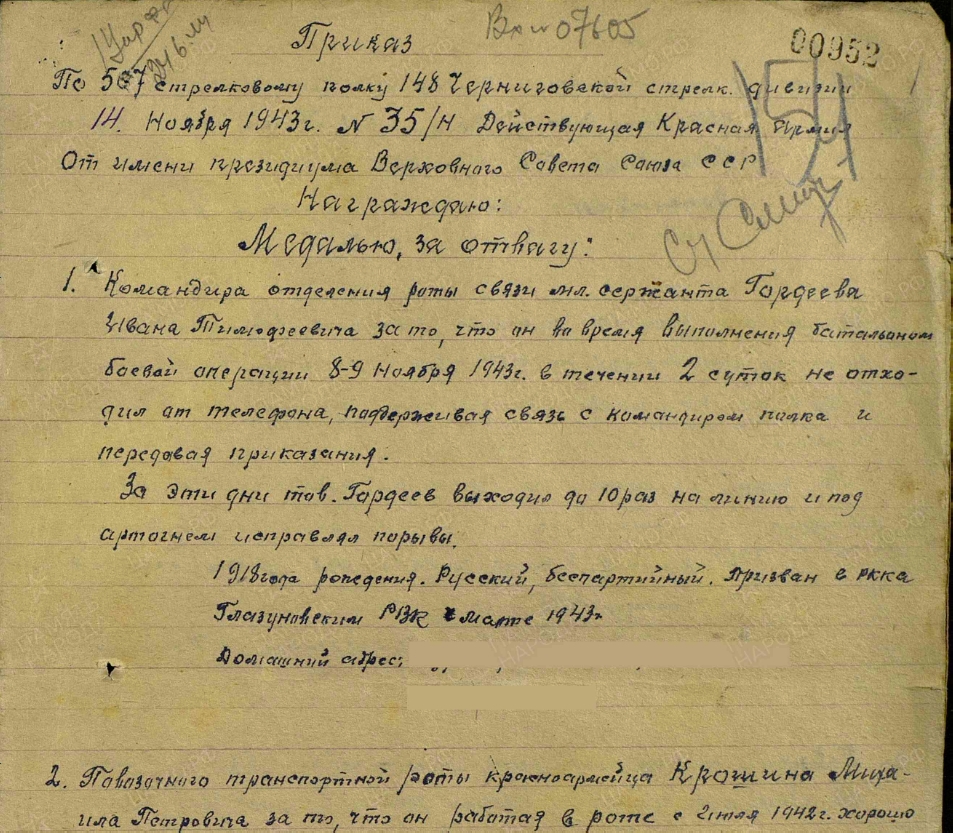 Вх № 07605
00952
Приказ
По 507 стрелковому полку 148 Черниговской стрелк. дивизии
14. Ноября 1943г. N 35/н Действующая Красная Армия
От имени президиума Верховного Совета Союза ССР
Награждаю:
Медалью, за отвагу:
1. Командира отделения роты связи мл. сержанта Гордеева
Ивана Тимофеевича за то, что он во время выполнения батальоном
боевой операции 8-9 Ноября 1943г. в течении 2 суток не отхо-
дил от телефона, поддерживая связь с командиром полка и
передавая приказания.
За эти дни тов. Гордеев выходил до 10 раз на линию и под
артогнем исправлял порывы.
1918 года рождения. Русский, беспартийный. Призван в РККА
Глазуновским РВК в марте 1943г
Домашний адрес:
2. Повозочного транспортной роты красноармейца Крошина Миха-
ила Петровича за то, что он работая в роте с 2 июля 1942г. хорошо